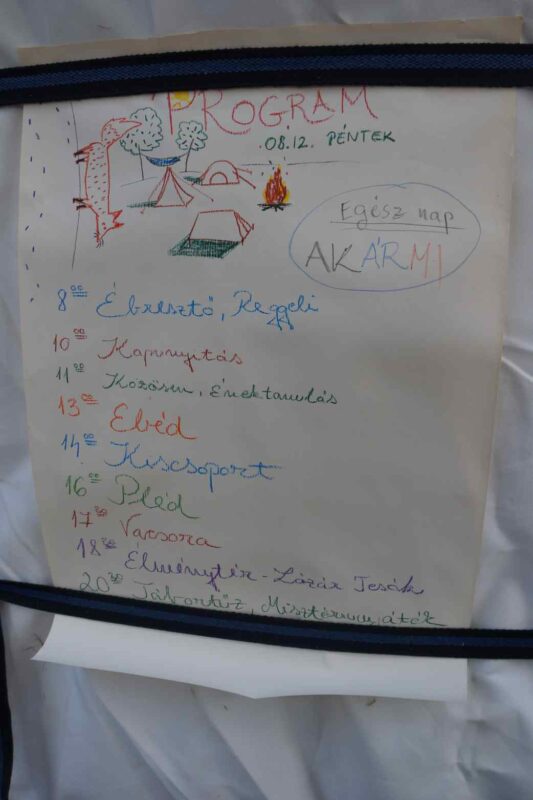 PROGRAM
08.12. PÉNTEK
Egész nap
AKÁRMI
8 00 Ébresztő, Reggeli
10 00 Kapunyitás
11 00 Közösen, énektanulás
13 00 Ebéd
14 00 Kiscsoport
16 00 Pléd
17 30 Vacsora
18 30 Élménytér - Lázár Jesák
20 30 Tábortűz, játék